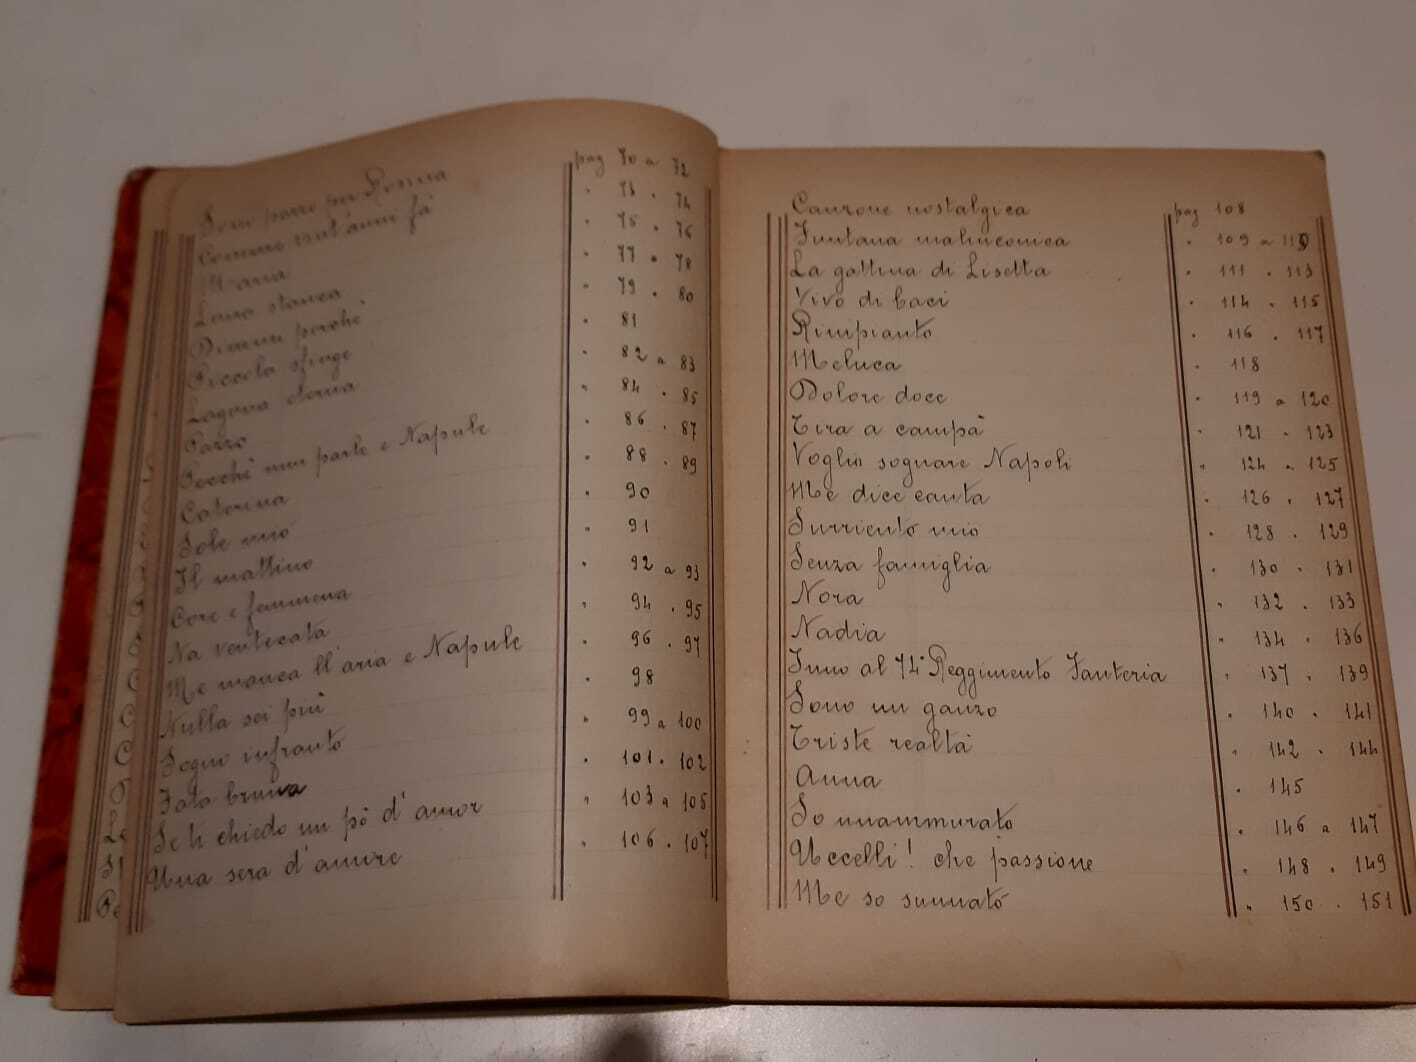 Sono pazzo per Rosina pag 70 a 72
Comme vint'anni fà " 73 . 74
Maria " 75 . 76
Luna stanca " 77 . 78
Dimmi perchè " 79 . 80
Piccola sfinge " 81
Laguna eterna " 82 a 83
Pazzo " 84 . 85
Pecchè nun parle e Napule " 86 . 87
Caterina " 88 . 89
Sole mio " 90
Il mattino " 91
Core e femmena " 92 a 93
Na ventecata " 94 . 95
Me manca ll'aria e Napule " 96 . 97
Nulla sei più " 98
Sogno infranto " 99 a 100
Fata bruna " 101 . 102
Se ti chiedo un pò d'amor " 103 a 105
Una sera d'amore " 106 . 107
Canzone nostalgica pag 108
Funtana malinconica " 109 a 110
La gattina di Lisetta " 111 . 113
Vivo di baci " 114 . 115
Rimpianto " 116 . 117
Meluca " 118
Dolore doce " 119 a 120
Tira a campà " 121 . 123
Voglio sognare Napoli " 124 a 125
Me dice canta " 126 . 127
Surriento mio " 128 . 129
Senza famiglia " 130 . 131
Nora " 132 . 133
Nadia " 134 . 136
Inno al 74° Reggimento Fanteria " 137 . 139
Sono un ganzo " 140 . 141
Triste realtà " 142 . 144
Anna " 145
So nnammurato " 146 a 147
Uccelli! che passione " 148 . 149
Me so sunnatò " 150 . 151